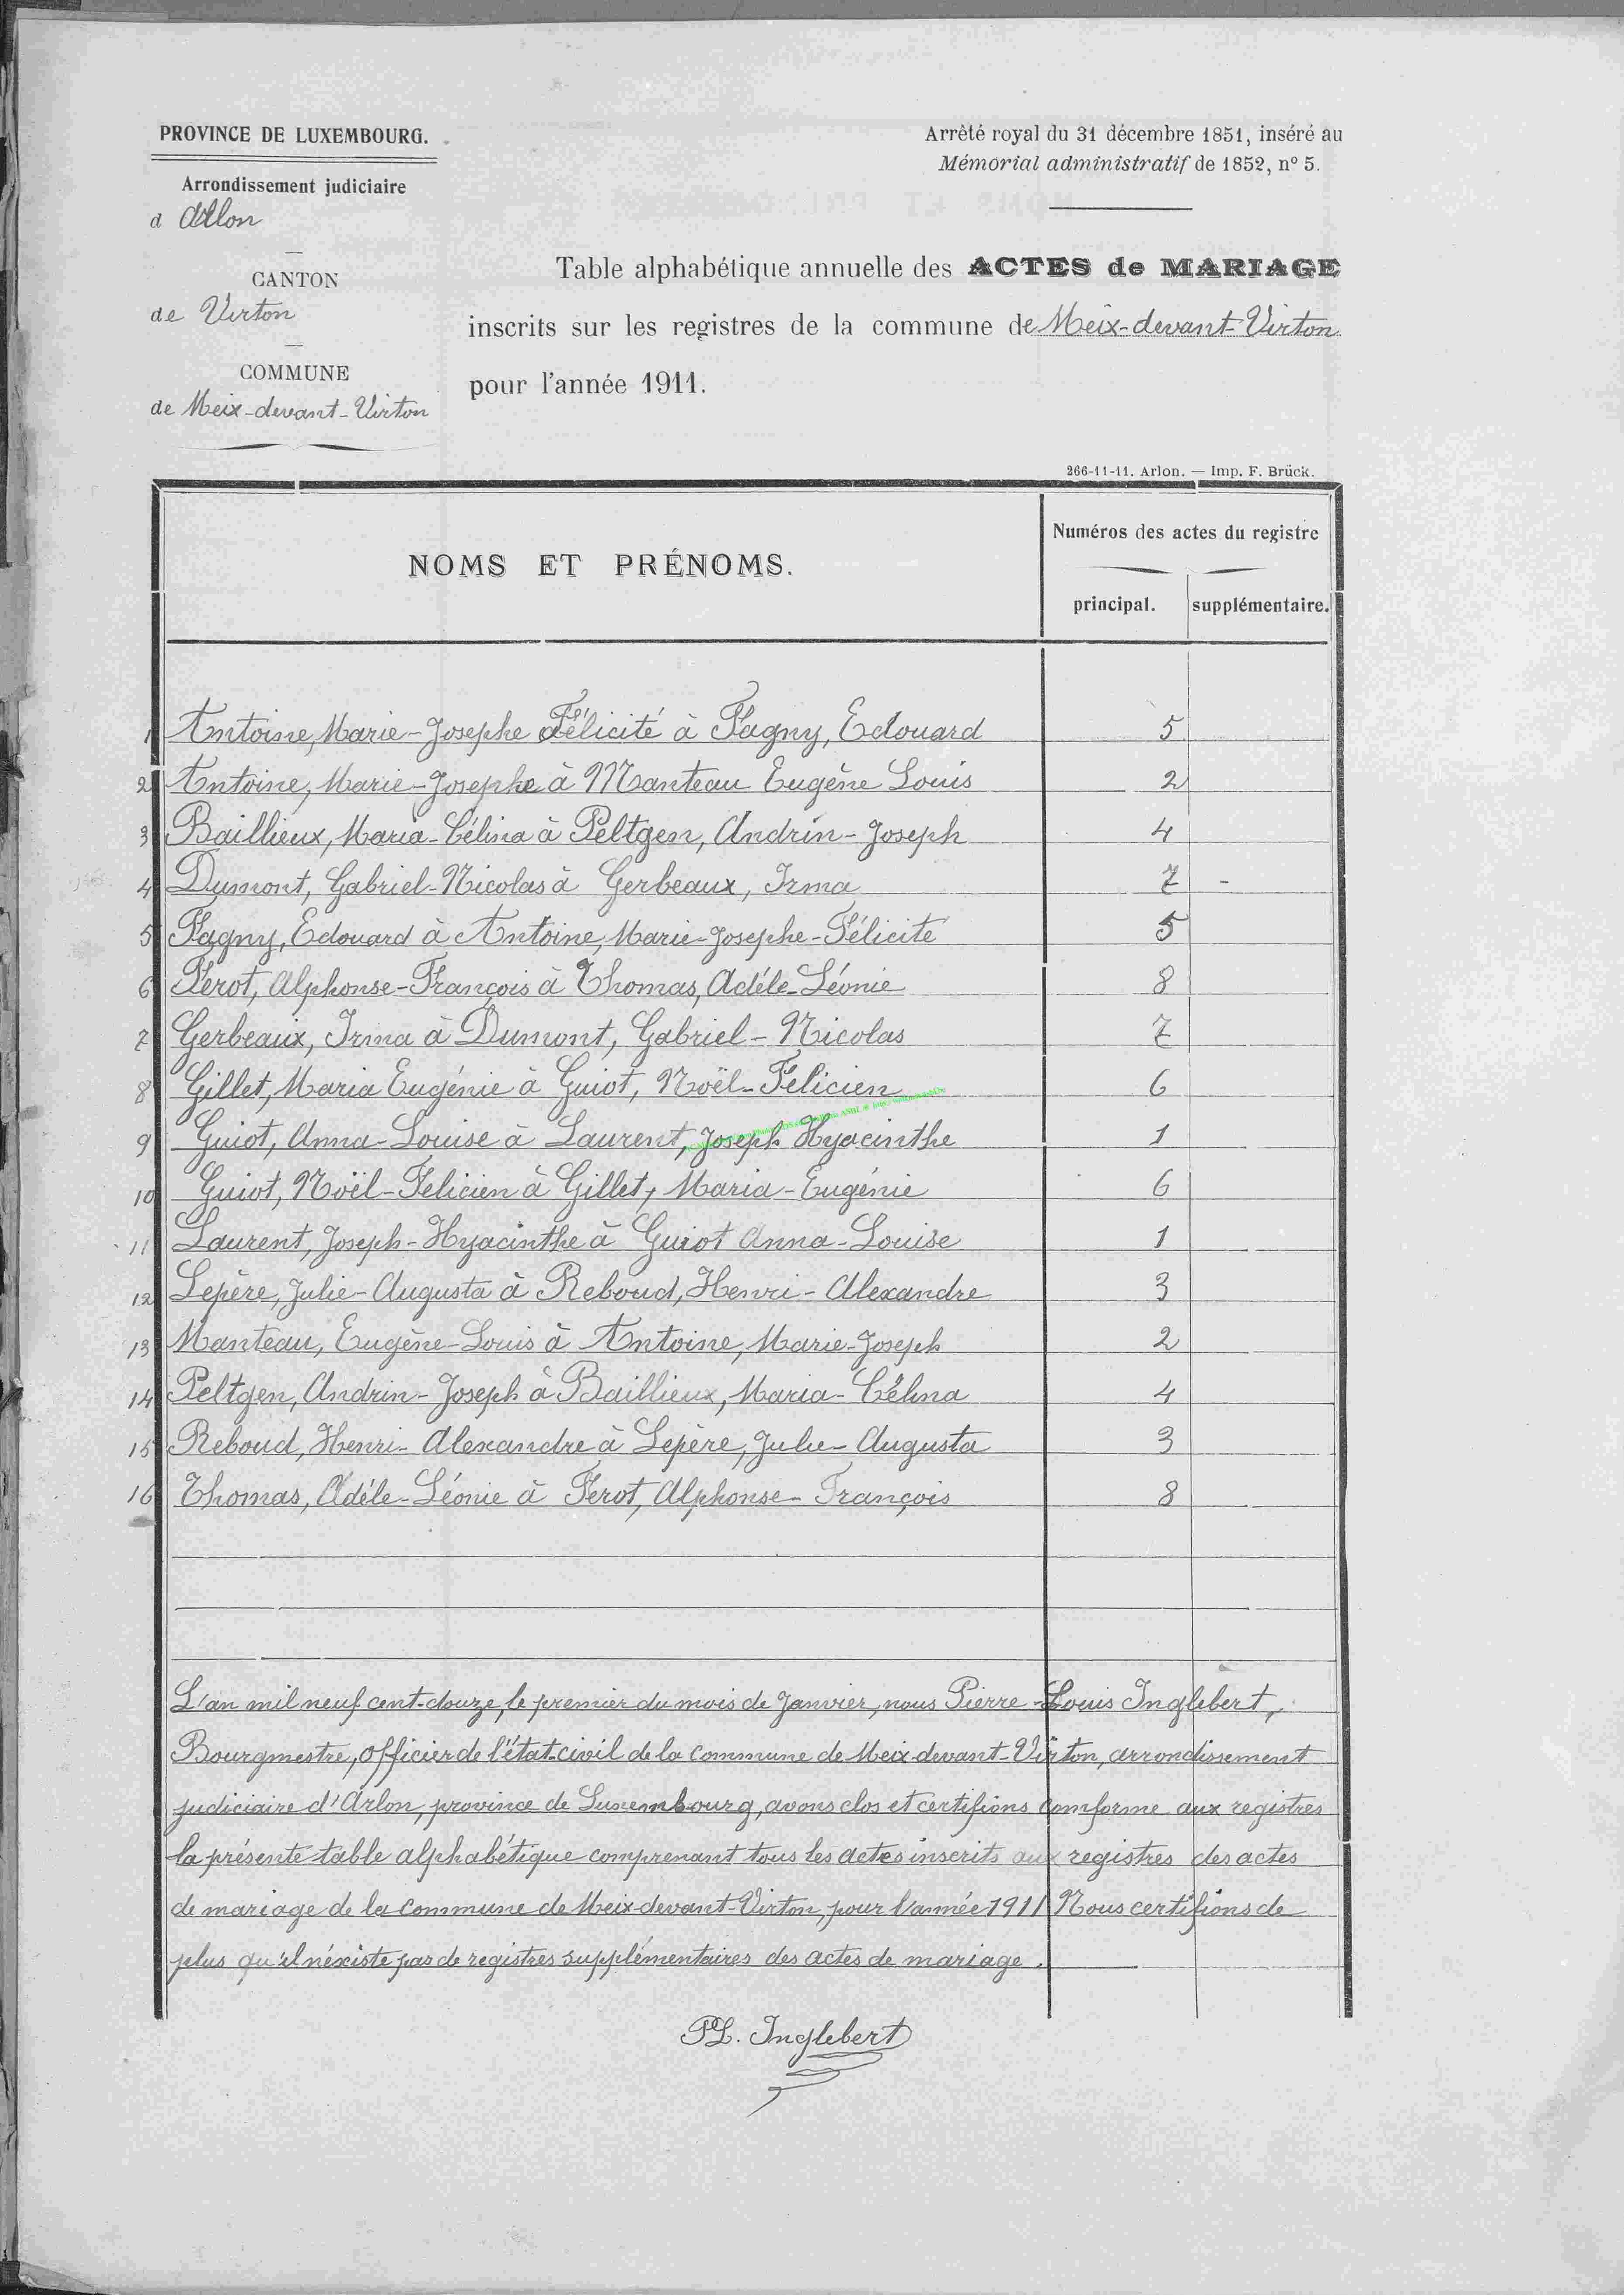 PROVINCE DE LUXEMBOURG.
Arrêté royal du 31 décembre 1851, inséré au
Mémorial administratif de 1852, nº 5.
Arrondissement judiciaire
d Arlon
CANTON
de Virton
COMMUNE
de Meix-devant-Virton
Table alphabétique annuelle des ACTES de MARIAGE
inscrits sur les registres de la commune de Meix-devant-Virton
pour l'année 1911.
266-11-11. Arlon. — Imp. F. Brück.
NOMS ET PRÉNOMS.
Numéros des actes du registre
principal. supplémentaire.
1 Antoine, Marie-Josephe Félicité à Fagny, Edouard 5
2 Antoine, Marie-Josephe à Manteau Eugène Louis 2
3 Baillieux, Maria-Célina à Peltgen, Andrin-Joseph 4
4 Dumont, Gabriel-Nicolas à Gerbeaux, Irma 7 -
5 Fagny, Edouard à Antoine, Marie-Josephe-Félicité 5
6 Ferot, Alphonse-François à Thomas, Adéle-Léonie 8
7 Gerbeaux, Irma à Dumont, Gabriel-Nicolas 7
8 Gillet, Maria Eugénie à Guiot, Noël-Felicien 6
9 Guiot, Anna-Louise à Laurent, Joseph Hyacinthe 1
10 Guiot, Noël-Felicien à Gillet, Maria-Eugénie 6
11 Laurent, Joseph-Hyacinthe à Guiot Anna-Louise 1
12 Lepère, Julie-Augusta à Reboud, Henri-Alexandre 3
13 Manteau, Eugène-Louis à Antoine, Marie-Joseph 2
14 Peltgen, Andrin-Joseph à Baillieux, Maria-Célina 4
15 Reboud, Henri-Alexandre à Lepère, Julie-Augusta 3
16 Thomas, Adéle-Léonie à Ferot, Alphonse-François 8
L'an mil neuf cent-douze, le premier du mois de Janvier, nous Pierre-Louis Inglebert,
Bourgmestre, officier de l'état-civil de la Commune de Meix-devant-Virton, arrondissement
judiciaire d'Arlon, province de Luxembourg, avons clos et certifions comforme aux registres
la présente table alphabétique comprenant tous les actes inscrits aux registres des actes
de mariage de la Commune de Meix-devant-Virton, pour l'année 1911 Nous certifions de
plus qu'il n'éxiste pas de registres supplémentaires des actes de mariage.
PL. Inglebert